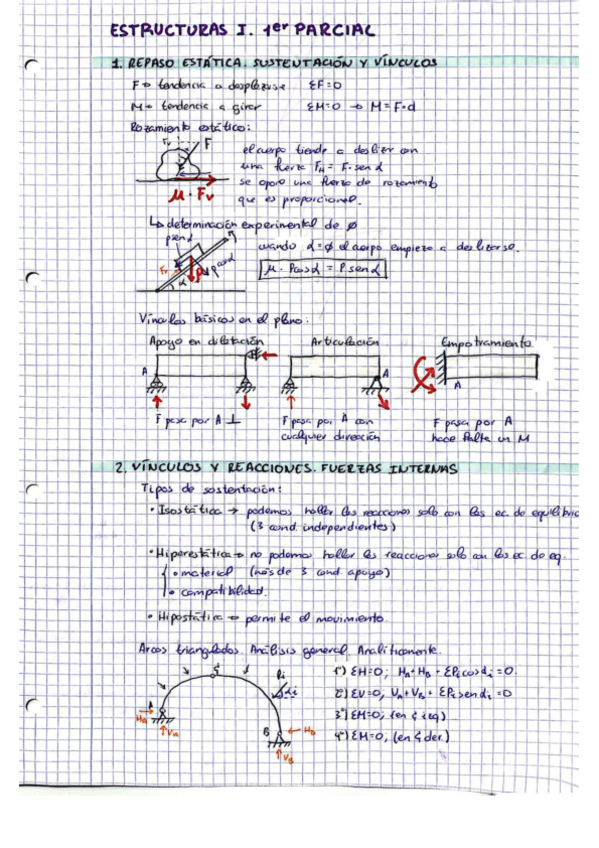 ESTRUCTURAS I. 1er PARCIAL
1. REPASO ESTÁTICA. SUSTENTACIÓN Y VÍNCULOS
F → tendencia a desplazarse ΣF=0
M → tendencia a girar ΣM=0 → M=F·d
Rozamiento estático:
Fv F
el cuerpo tiende a deslizar con
una fuerza FH = F·sen α
se opone una fuerza de rozamiento
que es proporcional.
μ·Fv
↳ determinación experimental de φ
psenα
cuando α=φ el cuerpo empieza a deslizarse.
μ·Pcosα = P senα
Fr P pcosα
α
Vínculos básicos en el plano:
Apoyo en dilatación Articulación Empotramiento
A A A
F pasa por A ⊥ F pasa por A con cualquier dirección F pasa por A hace falta un M
2. VÍNCULOS Y REACCIONES. FUERZAS INTERNAS
Tipos de sustentación:
• Isostática → podemos hallar las reacciones solo con las ec. de equilibrio
(3 cond. independientes)
• Hiperestática → no podemos hallar las reacciones solo con las ec. de eq.
• material (más de 3 cond. apoyo)
• compatibilidad.
• Hipostática → permite el movimiento.
Arcos triangulados. Análisis general. Analíticamente.
1º) ΣH=0; HA-HB + ΣPi cosαi = 0.
2º) ΣV=0, VA+VB + ΣPi senαi = 0
3º) ΣM=0; (en ȼ izq)
4º) ΣM=0, (en ȼ der.)
ȼ Pi αi
A HA VA
B HB VB